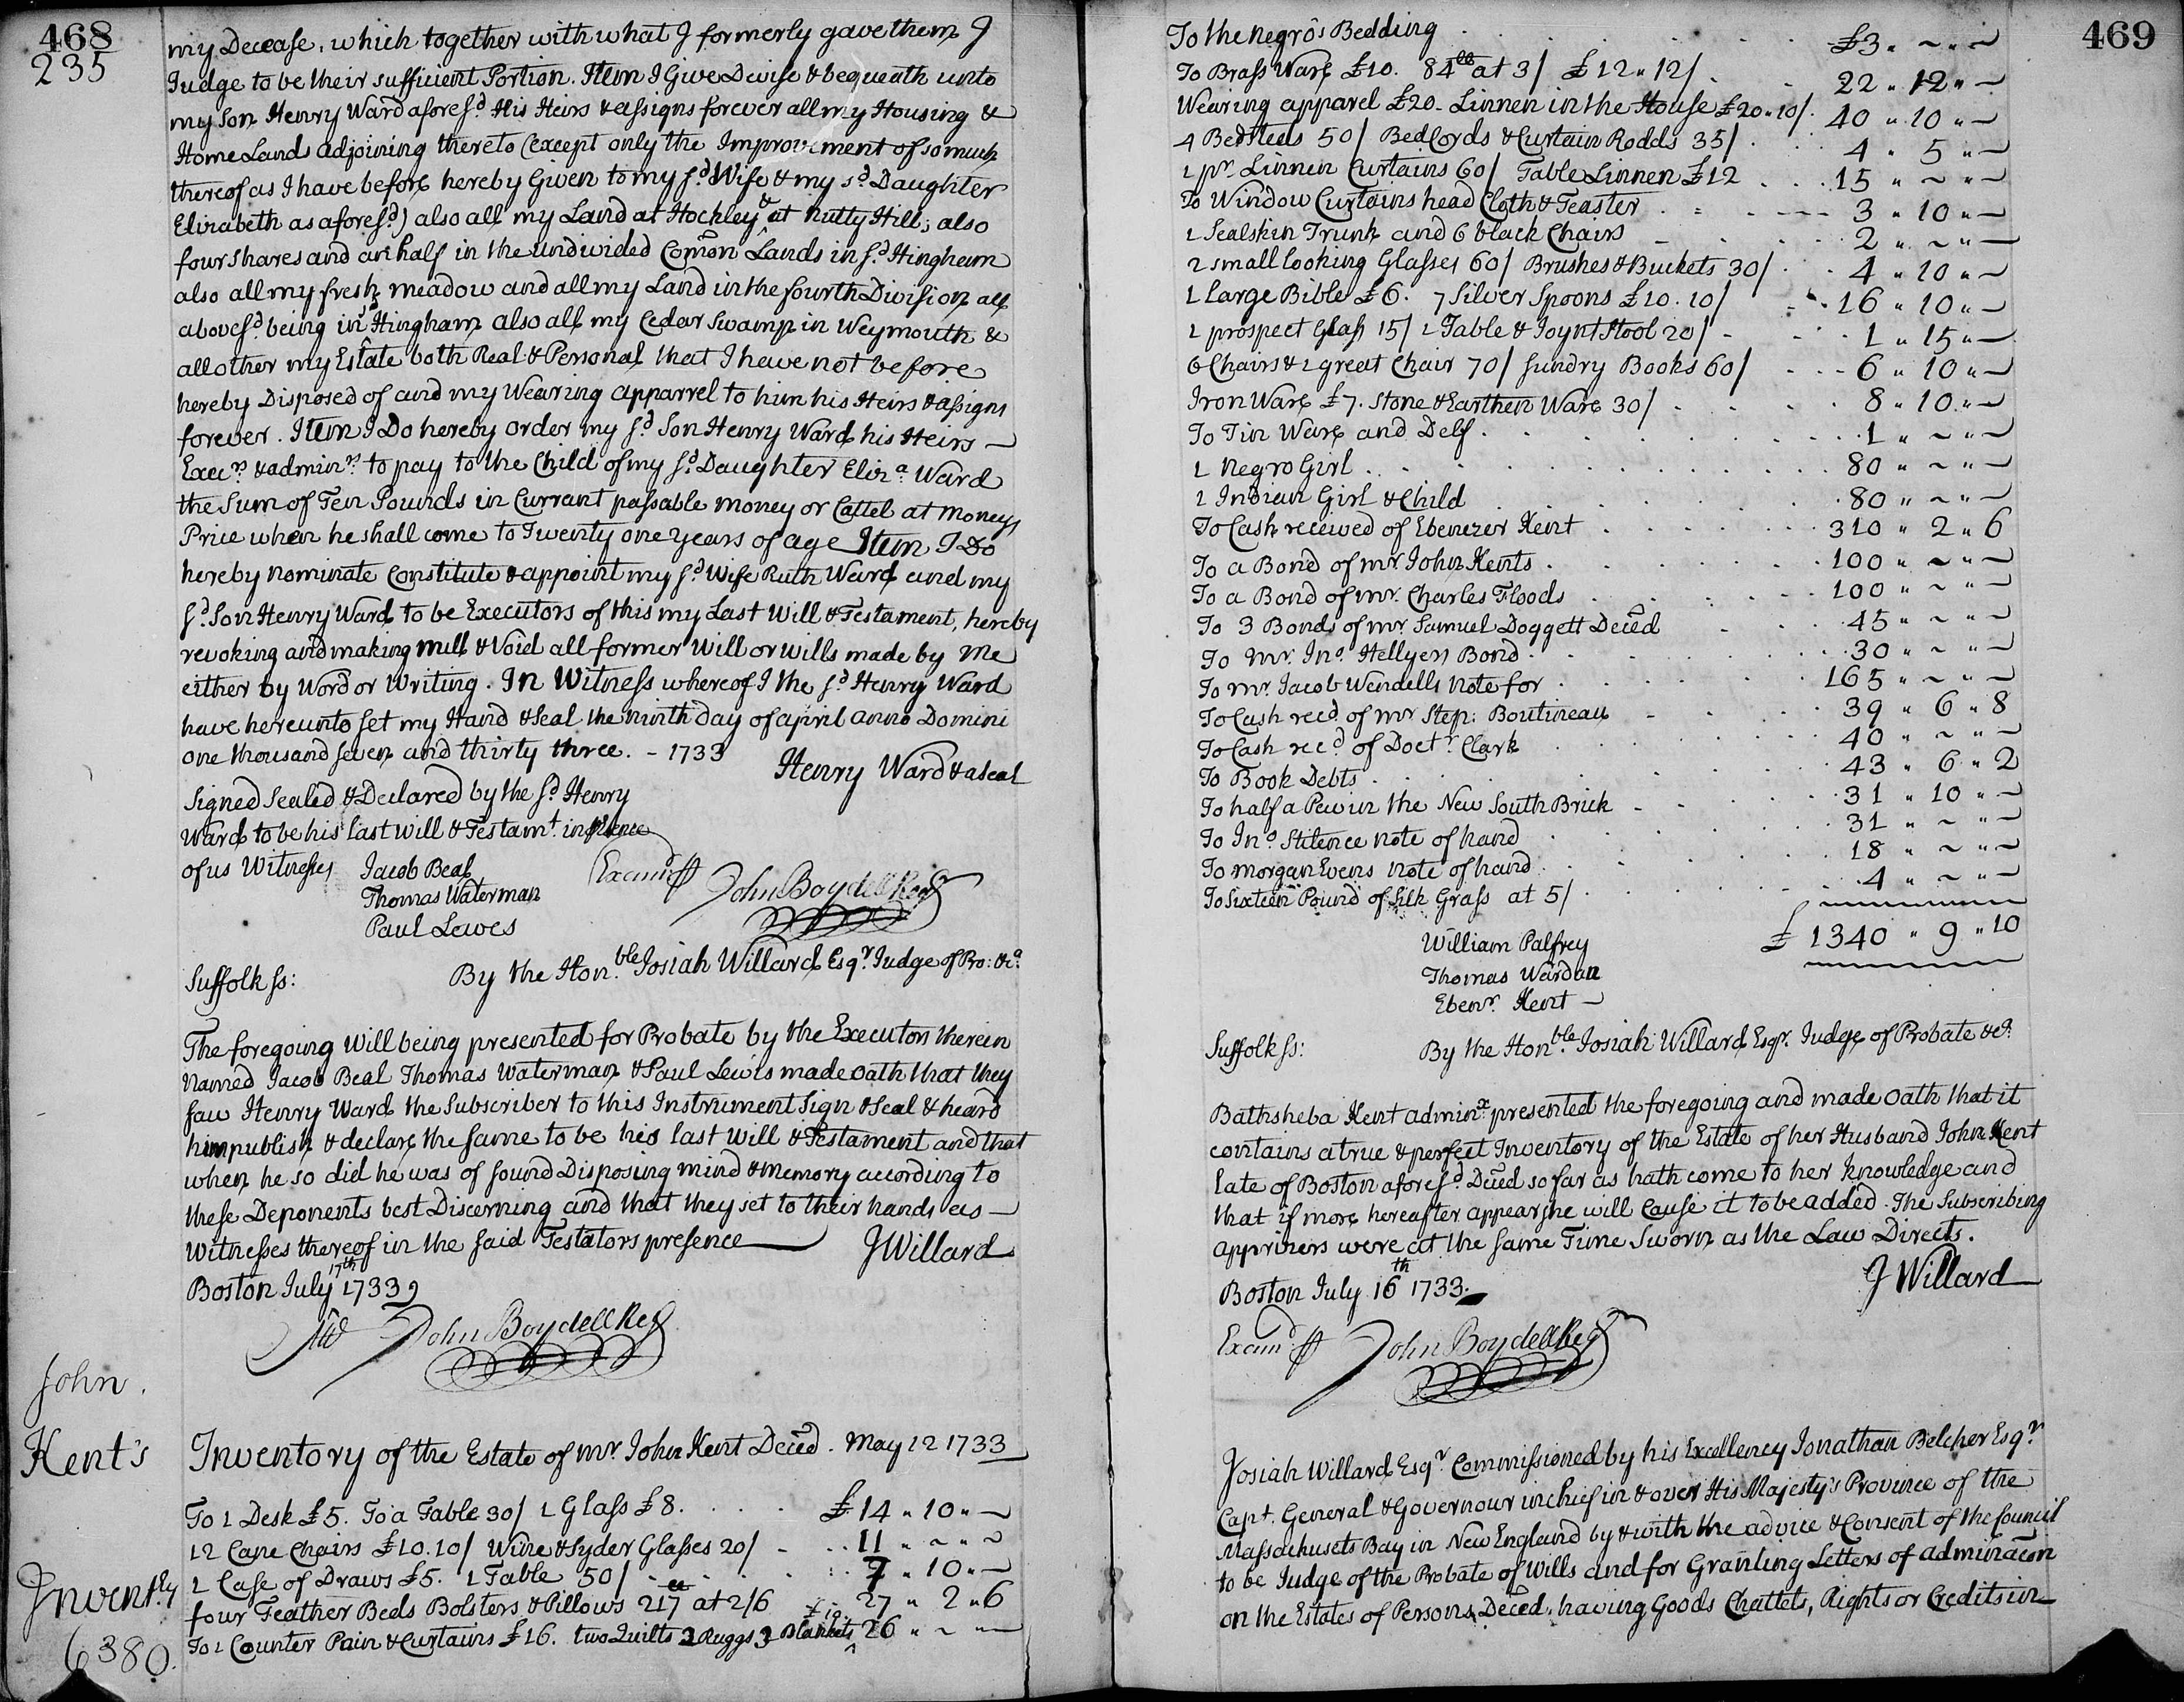 468
235
my Decease, which together with what I formerly gave them I
Judge to be their sufficient Portion. Item I Give Devise & bequeath unto
my Son Henry Ward afores.d His Heirs & assigns forever all my Housing &
Home Lands adjoining thereto (except only the Improvement of so much
thereof as I have before hereby Given to my s.d Wife & my s.d Daughter
Elizabeth as afores.d) also all my Land at Hockley & at Nutty Hill; also
four shares and an half in the undivided Comon Lands in s.d Hingham
also all my fresh meadow and all my Land in the fourth Division all
aboves.d being in s.d Hingham also all my Cedar Swamp in Weymouth &
all other my Estate both Real & Personal that I have not before
hereby Disposed of and my Wearing apparrel to him his Heirs & assigns
forever. Item I Do hereby order my s.d Son Henry Ward his Heirs
Exec.rs & admin.rs to pay to the Child of my s.d Daughter Eliz.a Ward
the Sum of Ten Pounds in Currant passable money or Cattel at moneys
Price when he shall come to Twenty one years of age Item I Do
hereby nominate Constitute & appoint my s.d Wife Ruth Ward and my
s.d Son Henry Ward to be Executors of this my Last Will & Testament, hereby
revoking and making null & Void all former Will or wills made by me
either by Word or Writing. In Witness whereof I the s.d Henry Ward
have hereunto set my Hand & Seal the ninth day of april anno Domini
one thousand seven and thirty three. - 1733
Henry Ward & a Seal
Signed Sealed & Declared by the s.d Henry
Ward to be his last will & Testam.t in presence
of us Witnesses Jacob Beal
Thomas Waterman
Paul Lewes
Exam.d p John Boydell Reg
Suffolk ss: By the Hon.ble Josiah Willard Esq.r Judge of Pro: &c.a
The foregoing Will being presented for Probate by the Executors therein
Named Jacob Beal Thomas Waterman & Paul Lewis made oath that they
saw Henry Ward the Subscriber to this Instrument Sign & Seal & heard
him publish & declare the same to be his last Will & Testament and that
when he so did he was of sound Disposing mind & memory according to
these Deponents best Discerning and that they set to their hands as
Witnesses thereof in the said Testators presence J Willard
Boston July 17th 1733
John Boydell Reg
John
Kent's
Invent.ry
6380.
Inventory of the Estate of mr. John Kent Deced. May 12 1733
To 1 Desk £5. To a Table 30/ 1 Glass £8. £14 " 10 " ~
12 Cane Chairs £10.10/ Wine & Syder Glasses 20/ 11 " ~ " ~
1 Case of Draws £5. 1 Table 50/ 7 " 10 " ~
four Feather Beds Bolsters & Pillows 217 at 2/6 27 " 2 " 6
To 1 Counter Pain & Curtains £16. two Quilts 3 Ruggs 3 Blankets £10. 26 " ~ " ~
469
To the negro's Bedding £3 " ~ " ~
To Brass Ware £10. 84 lb at 3/ £12 " 12/ 22 " 12 " ~
Wearing apparel £20 - Linnen in the House £20 " 10/. 40 " 10 " ~
4 Bedsteeds 50/ Bed Cords & Curtain Rodds 35/ 4 " 5 " ~
1 pr. Linnen Curtains 60/ Table Linnen £12 15 " ~ " ~
To Window Curtains head Cloth & Teaster 3 " 10 " ~
1 Sealskin Trunk and 6 black Chairs 2 " ~ " ~
2 small looking Glasses 60/ Brushes & Buckets 30/ 4 " 10 " ~
1 Large Bible £6. 7 Silver Spoons £10.10/ 16 " 10 " ~
1 prospect Glass 15/ 1 Table & Joynt Stool 20/ 1 " 15 " ~
6 Chairs & 1 great Chair 70/ Sundry Books 60/ 6 " 10 " ~
Iron Ware £7. Stone & Earthen Ware 30/ 8 " 10 " ~
To Tin Ware and Delf 1 " ~ " ~
1 Negro Girl 80 " ~ " ~
1 Indian Girl & Child 80 " ~ " ~
To Cash received of Ebenezer Kent 310 " 2 " 6
To a Bond of mr. John Kents 100 " ~ " ~
To a Bond of mr. Charles Floods 100 " ~ " ~
To 3 Bonds of mr. Samuel Doggett Deced 45 " ~ " ~
To mr. Jno. Hellyers Bond 30 " ~ " ~
To mr. Jacob Wendells note for 165 " ~ " ~
To Cash recd. of mr Step: Boutineau 39 " 6 " 8
To Cash rec.d of Doct.r Clark 40 " ~ " ~
To Book Debts 43 " 6 " 2
To half a Pew in the New South Brick 31 " 10 " ~
To Jno. Stilence note of hand 31 " ~ " ~
To morgan Evens note of hand 18 " ~ " ~
To Sixteen Pound of Silk Grass at 5/ 4 " ~ " ~
£ 1340 " 9 " 10
William Palfrey
Thomas Wardan
Eben.r Kent
Suffolk ss: By the Hon.ble Josiah Willard Esqr. Judge of Probate &c.a
Bathsheba Kent admin.x presented the foregoing and made oath that it
contains a true & perfect Inventory of the Estate of her Husband John Kent
late of Boston afores.d Deced so far as hath come to her knowledge and
that if more hereafter appear she will cause it to be added. The Subscribing
apprizers were at the same Time Sworn as the Law Directs.
Boston July 16th 1733. J Willard
Exam.d p John Boydell Reg
Josiah Willard Esq.r Commissioned by his Excellency Jonathan Belcher Esq.r
Capt. General & Governour in chief in & over His Majesty's Province of the
Massachusets Bay in New England by & with the advice & Consent of the Council
to be Judge of the Probate of Wills and for Granting Letters of adminacon
on the Estates of Persons Deced. having Goods Chattels, Rights or Credits in